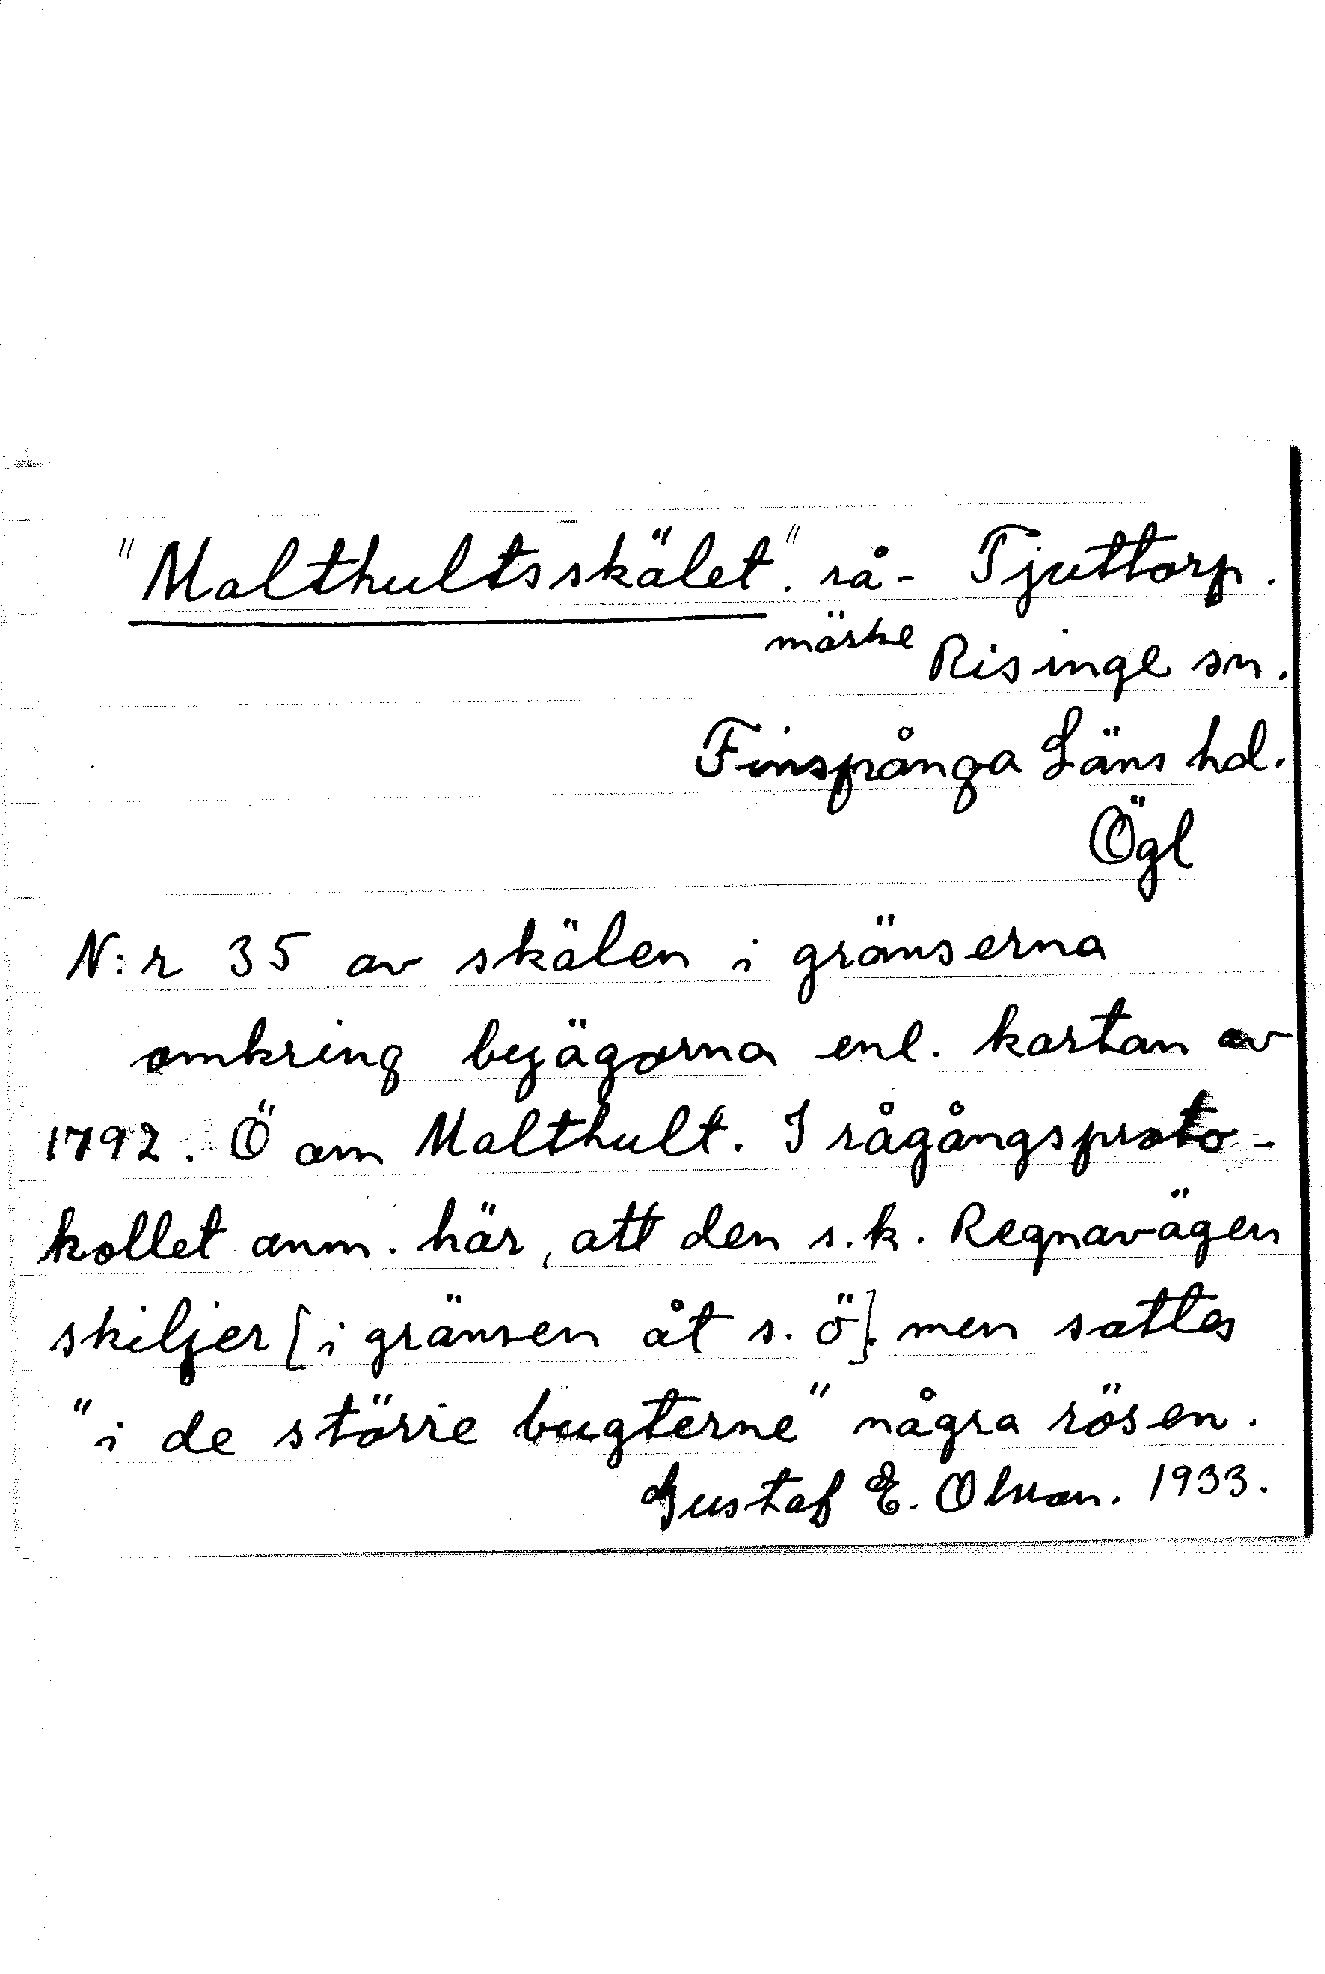 "Malthultsskälet". rå- Tjuttorp.
märke Risinge sn.
Finspånga Läns hd.
Ögl
N:r 35 av skälen i gränserna
omkring byägorna enl. kartan av
1792. Ö om Malthult. I rågångsproto-
kollet anm. här, att den s.k. Regnavägen
skiljer [i gränsen åt s. ö]. men sattes
"i de större bugterne" några rösen.
Gustaf E. Olsson. 1933.